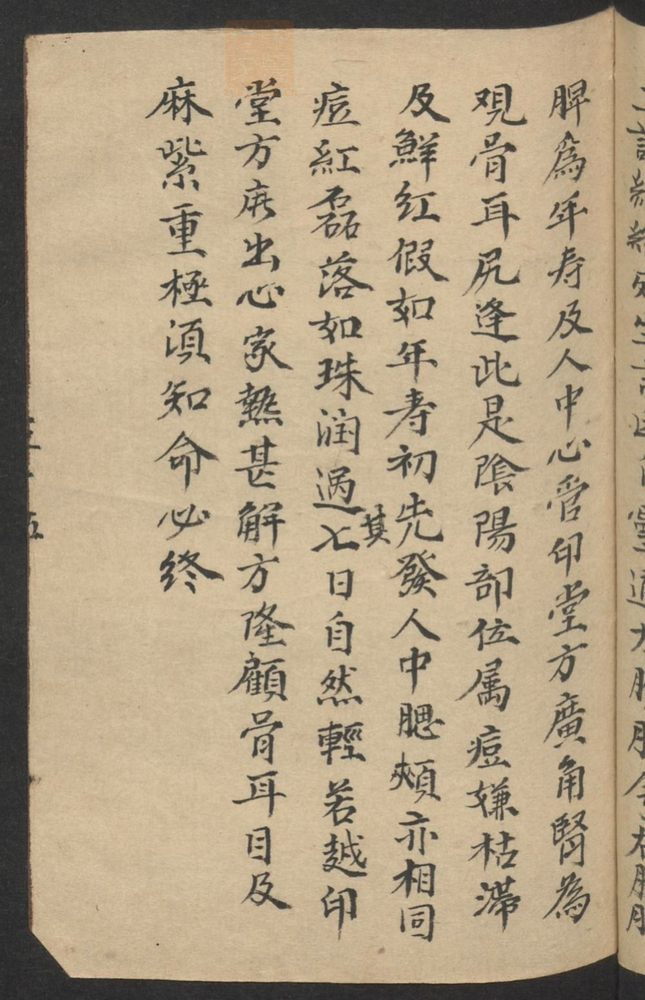 脾為年寿及人中心管印堂方廣角腎為
观骨耳尻逢此是陰陽部位属痘嫌枯滞
及鮮红假如年寿初先發人中腮頰亦相同
痘紅磊落如珠润過其七日自然輕若越印
堂方庥出心家熱甚解方隆顧骨耳目及
麻紫重極須知命必终